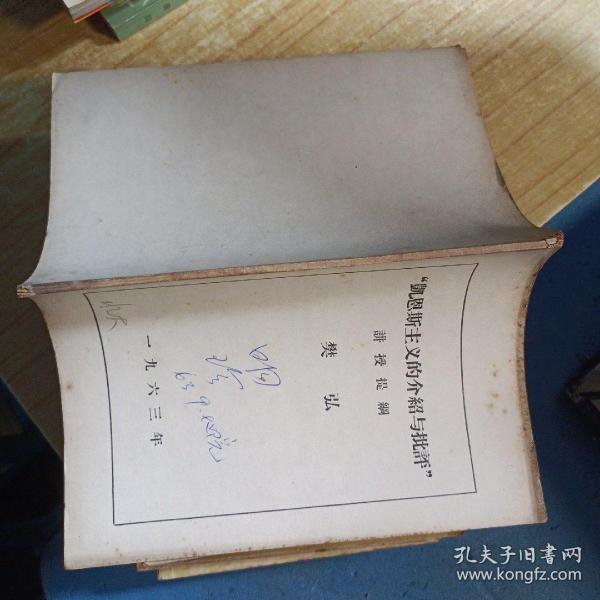 “凱恩斯主义的介紹与批評”
講授提綱
樊弘
一九六三年
孔夫子旧书网
www.kongfz.com